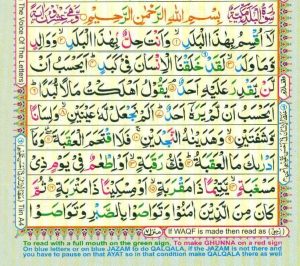 سُوْرَةُ الْبَلَدِ مَكِّيَّةٌ بِسْمِ اللّٰهِ الرَّحْمٰنِ الرَّحِيْمِ
لَاۤ اُقْسِمُ بِهٰذَا الْبَلَدِ وَاَنْتَ حِلٌّۢ بِهٰذَا الْبَلَدِ وَوَالِدٍ
وَّمَا وَلَدَ لَقَدْ خَلَقْنَا الْاِنْسَانَ فِيْ كَبَدٍ اَيَحْسَبُ اَنْ
لَّنْ يَّقْدِرَ عَلَيْهِ اَحَدٌ يَقُوْلُ اَهْلَكْتُ مَالًا لُّبَدًا
اَيَحْسَبُ اَنْ لَّمْ يَرَهٗۤ اَحَدٌ اَلَمْ نَجْعَلْ لَّهٗ عَيْنَيْنِ وَلِسَانًا
وَّشَفَتَيْنِ وَهَدَيْنٰهُ النَّجْدَيْنِ فَلَا اقْتَحَمَ الْعَقَبَةَ وَمَاۤ
اَدْرٰىكَ مَا الْعَقَبَةُ فَكُّ رَقَبَةٍ اَوْ اِطْعٰمٌ فِيْ يَوْمٍ ذِيْ
مَسْغَبَةٍ يَّتِيْمًا ذَا مَقْرَبَةٍ اَوْ مِسْكِيْنًا ذَا مَتْرَبَةٍ ثُمَّ
كَانَ مِنَ الَّذِيْنَ اٰمَنُوْا وَتَوَاصَوْا بِالصَّبْرِ وَتَوَاصَوْا
If WAQF is made then read as
To read with a full mouth on the green sign. To make GHUNNA on a red sign
On blue letters or on blue JAZAM to do QALQALA, if the JAZAM is not there and
you have to pause on that AYAT so in that condition make QALQALA there as well
The Voice Of The Letters